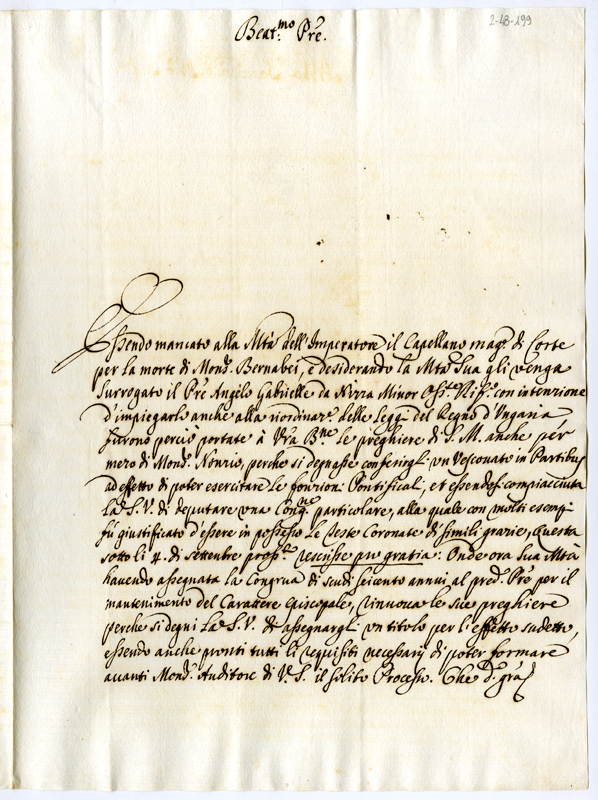 2-48-199
Beat.mo Pre.
Essendo mancato alla Mtà dell'Imperatore il Capellano mag.r di Corte
per la morte di Mons.r Bernabei, e desiderando la Mtà Sua gli venga
surrogato il Pre Angelo Gabrielle da Nizza Minor Oss.te Rif.to con intenzione
d'impiegarlo anche alla riordinaz.e delle Leggi del Regno d'Ungaria,
furono perciò portate à Vra B.ne le preghiere di S. M. anche per
mezo di Mons.r Nonzio, perche si degnasse conferirgli un Vescovato in Partibus
ad effetto di poter esercitare le fonzioni Pontificali, et essendosi compiacciuta
la S. V. di deputare una Cong.ne particolare, alla quale con molti esempi
fù giustificato d'essere in possesso le Teste Coronate di simili grazie, Questa
sotto li 4. di Settembre pross.o rescrisse pro gratia: Onde ora Sua Mtà
havendo assegnata la Congrua di scudi seicento annui al pred.o Pre per il
mantenimento del Carattere Episcopale, rinuova le sue preghiere
perche si degni la S. V. di assegnargli un titolo per l'effetto sudetto,
essendo anche pronti tutti li requisiti necessarij di poter formare
avanti Mons.r Auditore di V. S. il solito Processo. Che d.a grã